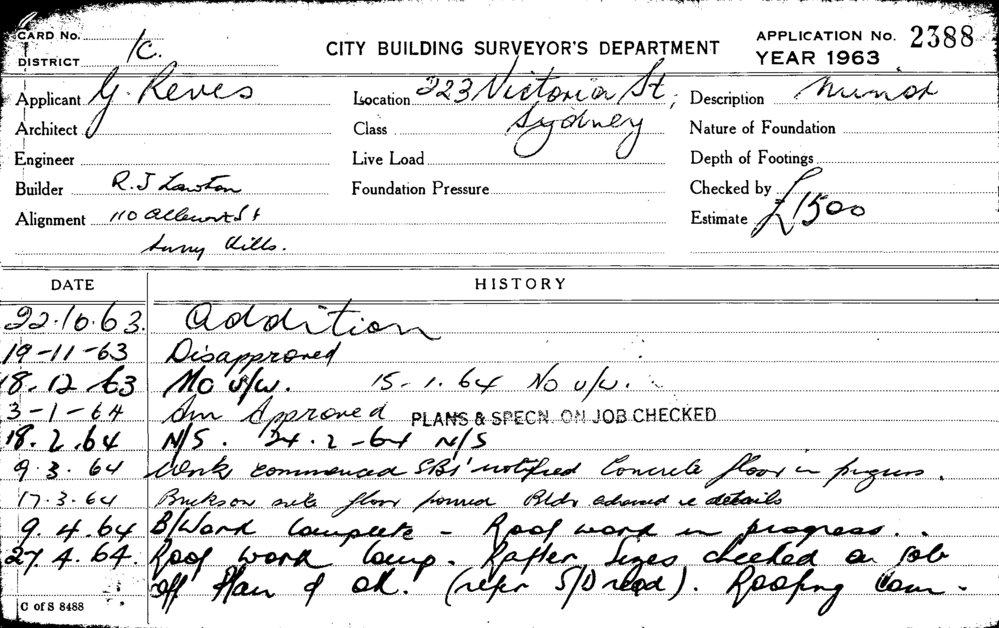 CARD No.
DISTRICT 1C.
CITY BUILDING SURVEYOR'S DEPARTMENT
APPLICATION No. 2388
YEAR 1963
Applicant G. Reves Location 223 Victoria St, Description Minor
Architect Class Sydney Nature of Foundation
Engineer Live Load Depth of Footings
Builder R. J Lawton Foundation Pressure Checked by
Alignment 110 St Estimate £1500
Surry Hills.
DATE HISTORY
22.10.63. Addition
19-11-63 Disapproved
18.12.63 No v/w. 15-1.64 No v/w.
3-1-64 Am Approved PLANS & SPECN. ON JOB CHECKED
18.2.64 N/S. 24.2-64 N/S
9.3.64 Works commenced SBI notified Concrete floor in progress.
17.3.64 Bricks on site floor poured Bldr advised re details
9.4.64 B/Work Complete - Roof work in progress.
27.4.64. Roof work Comp. Rafter Sizes checked on job
off Plan & ok. (refer S/D read). Roofing Com-
C of S 8488